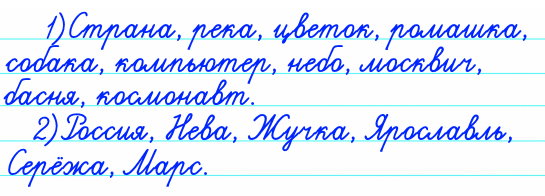 1) Страна, река, цветок, ромашка,
собака, компьютер, небо, москвич,
басня, космонавт.
2) Россия, Нева, Жучка, Ярославль,
Серёжа, Марс.